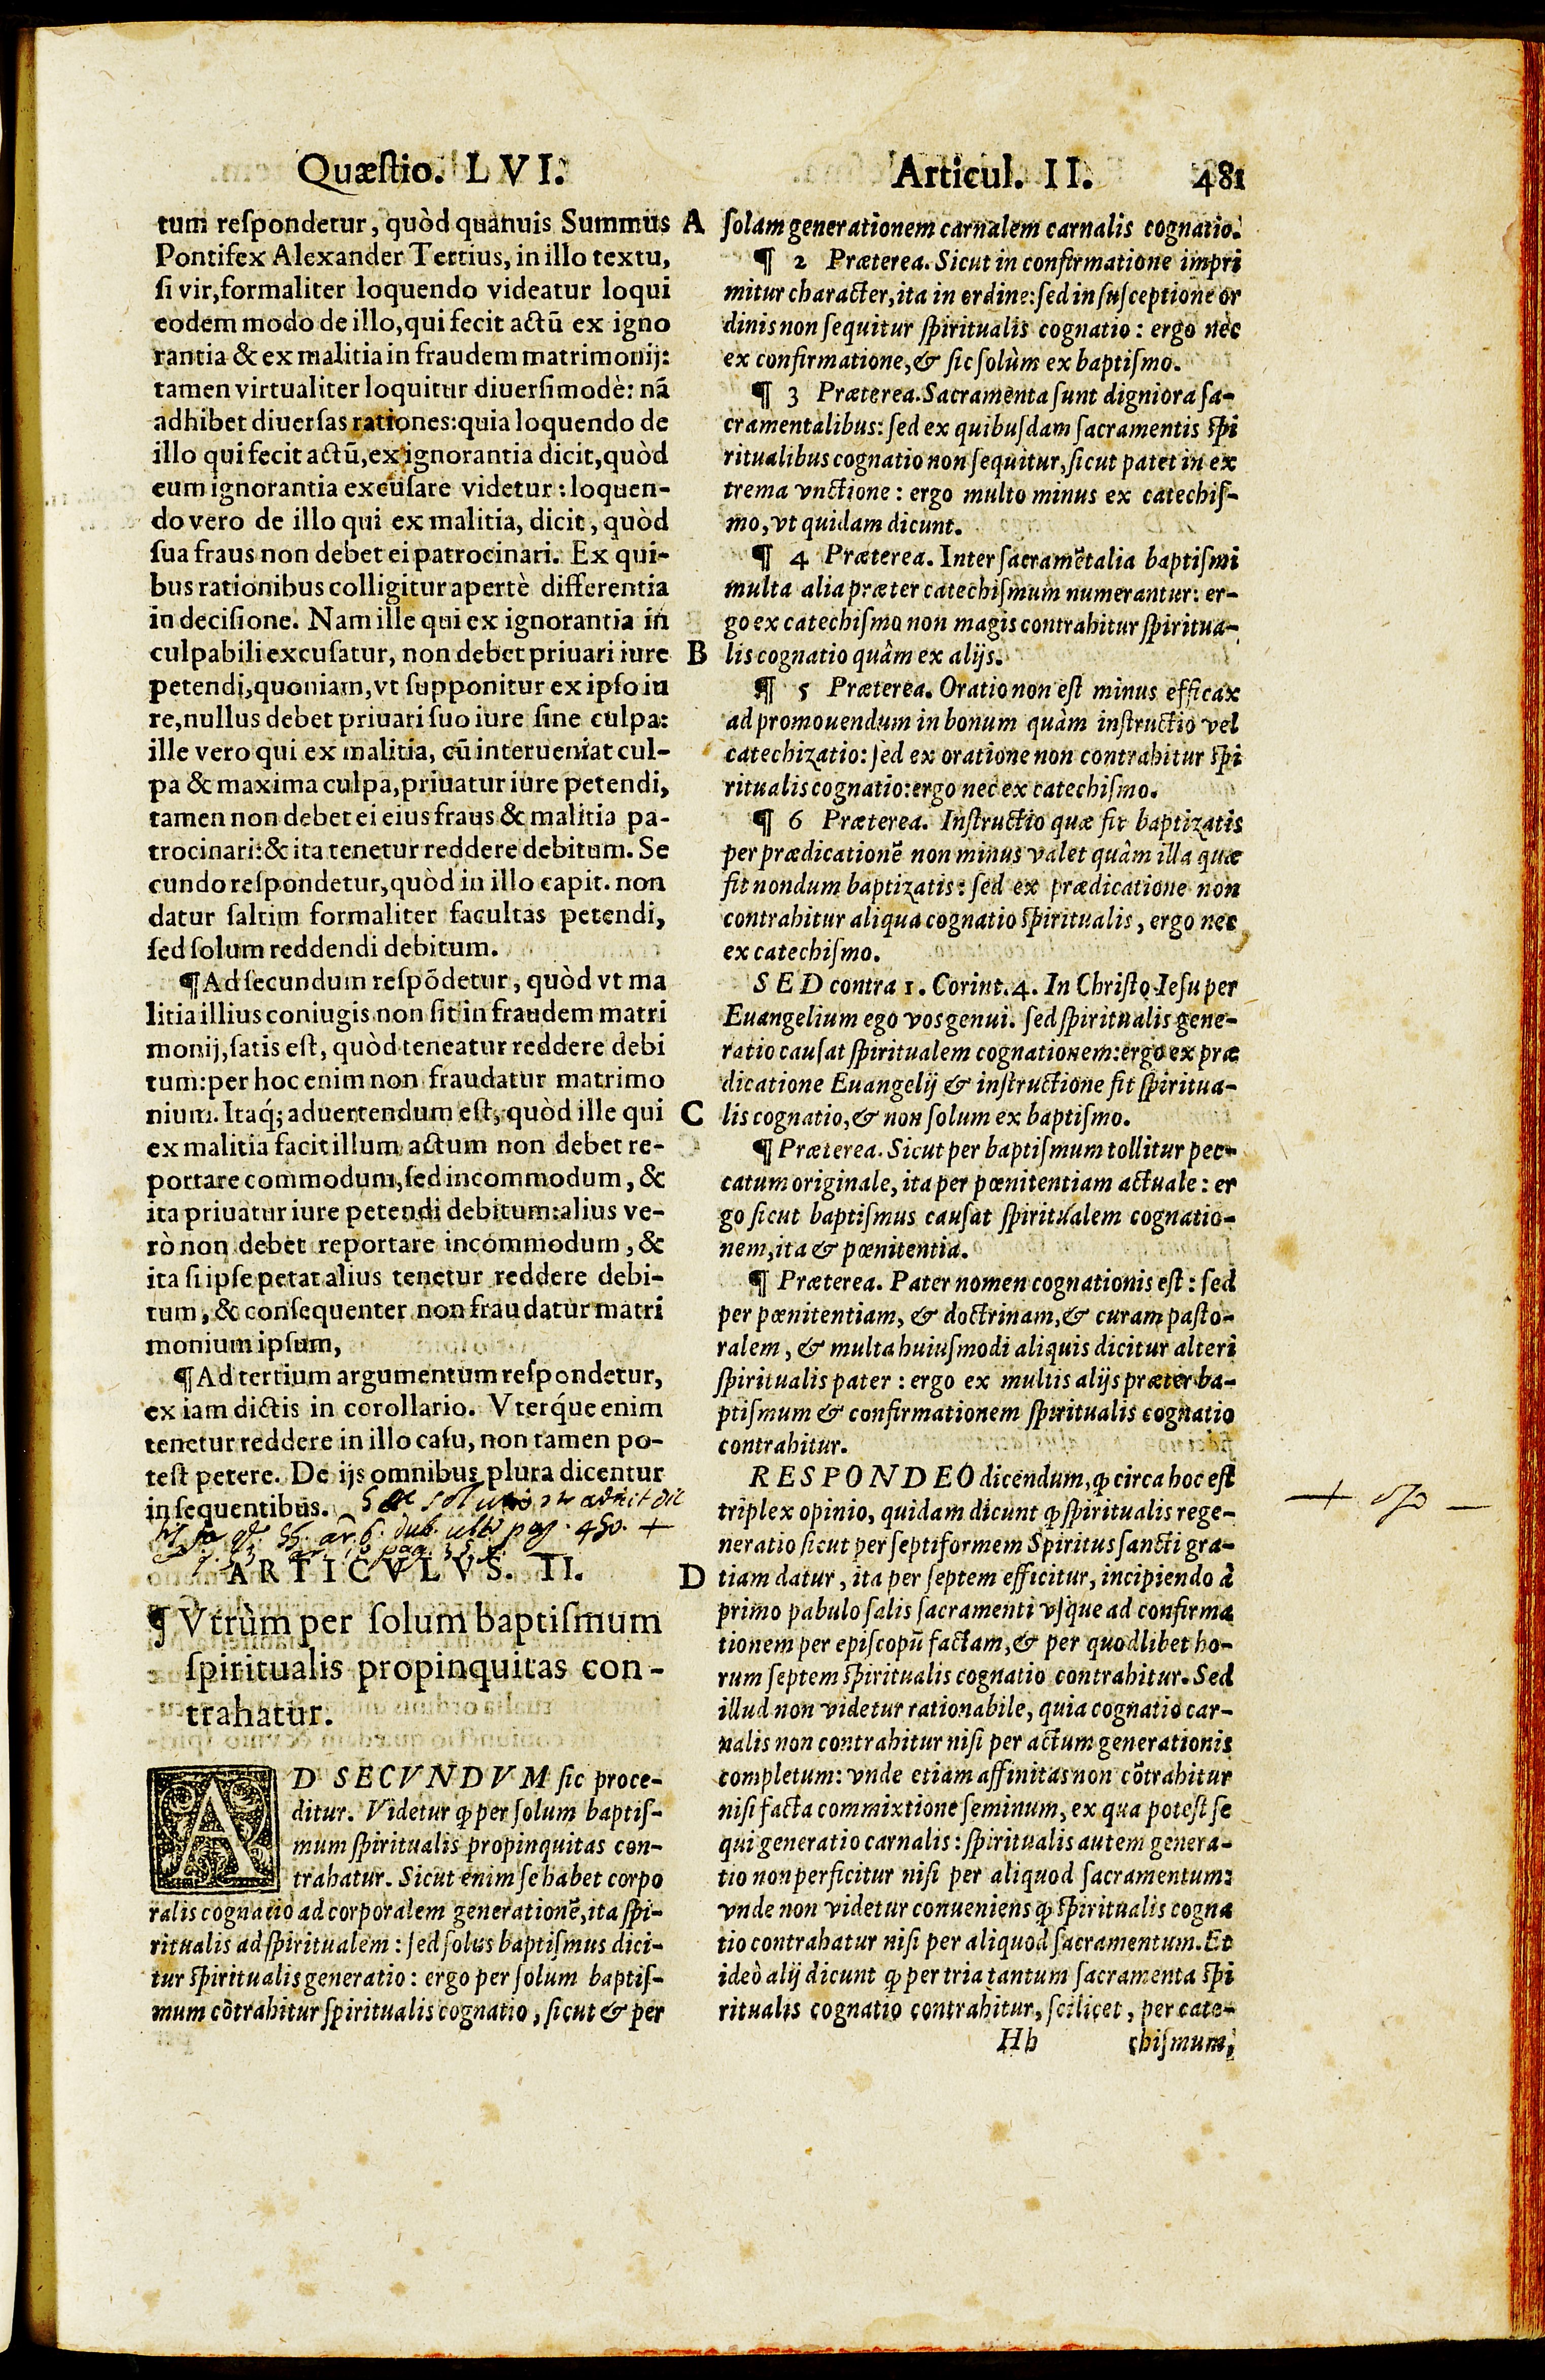 Quæſtio. LVI.
Articul. II. 481
tum reſpondetur, quòd quanuis Summus
Pontifex Alexander Tertius, in illo textu,
ſi vir, formaliter loquendo videatur loqui
eodem modo de illo, qui fecit actũ ex igno
rantia & ex malitia in fraudem matrimonij:
tamen virtualiter loquitur diuerſimodè: nã
adhibet diuerſas rationes: quia loquendo de
illo qui fecit actũ, ex ignorantia dicit, quòd
eum ignorantia excuſare videtur: loquen-
do vero de illo qui ex malitia, dicit, quòd
ſua fraus non debet ei patrocinari. Ex qui-
bus rationibus colligitur apertè differentia
in deciſione. Nam ille qui ex ignorantia in
culpabili excuſatur, non debet priuari iure
petendi, quoniam, vt ſupponitur ex ipſo iu
re, nullus debet priuari ſuo iure ſine culpa:
ille vero qui ex malitia, cũ interueniat cul-
pa & maxima culpa, priuatur iure petendi,
tamen non debet ei eius fraus & malitia pa-
trocinari: & ita tenetur reddere debitum. Se
cundo reſpondetur, quòd in illo capit. non
datur ſaltim formaliter facultas petendi,
ſed ſolum reddendi debitum.
¶ Ad ſecundum reſpõdetur, quòd vt ma
litia illius coniugis non ſit in fraudem matri
monij, ſatis eſt, quòd teneatur reddere debi
tum: per hoc enim non fraudatur matrimo
nium. Itaq́; aduertendum eſt, quòd ille qui
ex malitia facit illum actum non debet re-
portare commodum, ſed incommodum, &
ita priuatur iure petendi debitum: alius ve-
rò non debet reportare incommodum, &
ita ſi ipſe petat alius tenetur reddere debi-
tum, & conſequenter non fraudatur matri
monium ipſum,
¶ Ad tertium argumentum reſpondetur,
ex iam dictis in corollario. Vterq́ue enim
tenetur reddere in illo caſu, non tamen po-
teſt petere. De ijs omnibus plura dicentur
in ſequentibus.
pag. 450. +
ARTICVLVS. II.
¶ Vtrùm per ſolum baptiſmum
ſpiritualis propinquitas con-
trahatur.
AD SECVNDVM ſic proce-
ditur. Videtur ꝙ per ſolum baptiſ-
mum ſpiritualis propinquitas con-
trahatur. Sicut enim ſe habet corpo
ralis cognatio ad corporalem generationẽ, ita ſpi-
ritualis ad ſpiritualem: ſed ſolus baptiſmus dici-
tur ſpiritualis generatio: ergo per ſolum baptiſ-
mum cõtrahitur ſpiritualis cognatio, ſicut & per
A ſolam generationem carnalem carnalis cognatio.
¶ 2 Præterea. Sicut in confirmatione impri
mitur character, ita in ordine: ſed in ſuſceptione or
dinis non ſequitur ſpiritualis cognatio: ergo nec
ex confirmatione, & ſic ſolùm ex baptiſmo.
¶ 3 Præterea. Sacramenta ſunt digniora ſa-
cramentalibus: ſed ex quibuſdam ſacramentis ſpi
ritualibus cognatio non ſequitur, ſicut patet in ex
trema vnctione: ergo multo minus ex catechiſ-
mo, vt quidam dicunt.
¶ 4 Præterea. Inter ſacramẽtalia baptiſmi
multa alia præter catechiſmum numerantur: er-
go ex catechiſmo non magis contrahitur ſpiritua-
B lis cognatio quàm ex alijs.
¶ 5 Præterea. Oratio non eſt minus efficax
ad promouendum in bonum quàm inſtructio vel
catechizatio: ſed ex oratione non contrahitur ſpi
ritualis cognatio: ergo nec ex catechiſmo.
¶ 6 Præterea. Inſtructio quæ fit baptizatis
per prædicationẽ non minus valet quàm illa quæ
fit nondum baptizatis: ſed ex prædicatione non
contrahitur aliqua cognatio ſpiritualis, ergo nec
ex catechiſmo.
SED contra 1. Corint. 4. In Chriſto Ieſu per
Euangelium ego vos genui. ſed ſpiritualis gene-
ratio cauſat ſpiritualem cognationem: ergo ex præ
dicatione Euangelij & inſtructione fit ſpiritua-
C lis cognatio, & non ſolum ex baptiſmo.
¶ Præterea. Sicut per baptiſmum tollitur pec-
catum originale, ita per pœnitentiam actuale: er
go ſicut baptiſmus cauſat ſpiritualem cognatio-
nem, ita & pœnitentia.
¶ Præterea. Pater nomen cognationis eſt: ſed
per pœnitentiam, & doctrinam, & curam paſto-
ralem, & multa huiuſmodi aliquis dicitur alteri
ſpiritualis pater: ergo ex multis alijs præter ba-
ptiſmum & confirmationem ſpiritualis cognatio
contrahitur.
RESPONDEO dicendum, ꝙ circa hoc eſt
triplex opinio, quidam dicunt ꝙ ſpiritualis rege-
neratio ſicut per ſeptiformem Spiritus ſancti gra-
D tiam datur, ita per ſeptem efficitur, incipiendo à
primo pabulo ſalis ſacramenti vſque ad confirma
tionem per epiſcopũ factam, & per quodlibet ho-
rum ſeptem ſpiritualis cognatio contrahitur. Sed
illud non videtur rationabile, quia cognatio car-
nalis non contrahitur niſi per actum generationis
completum: vnde etiam affinitas non cõtrahitur
niſi facta commixtione ſeminum, ex qua poteſt ſe
qui generatio carnalis: ſpiritualis autem genera-
tio non perficitur niſi per aliquod ſacramentum:
vnde non videtur conueniens ꝙ ſpiritualis cogna
tio contrahatur niſi per aliquod ſacramentum. Et
ideò alij dicunt ꝙ per tria tantum ſacramenta ſpi
ritualis cognatio contrahitur, ſcilicet, per cate-
Hh chiſmum,